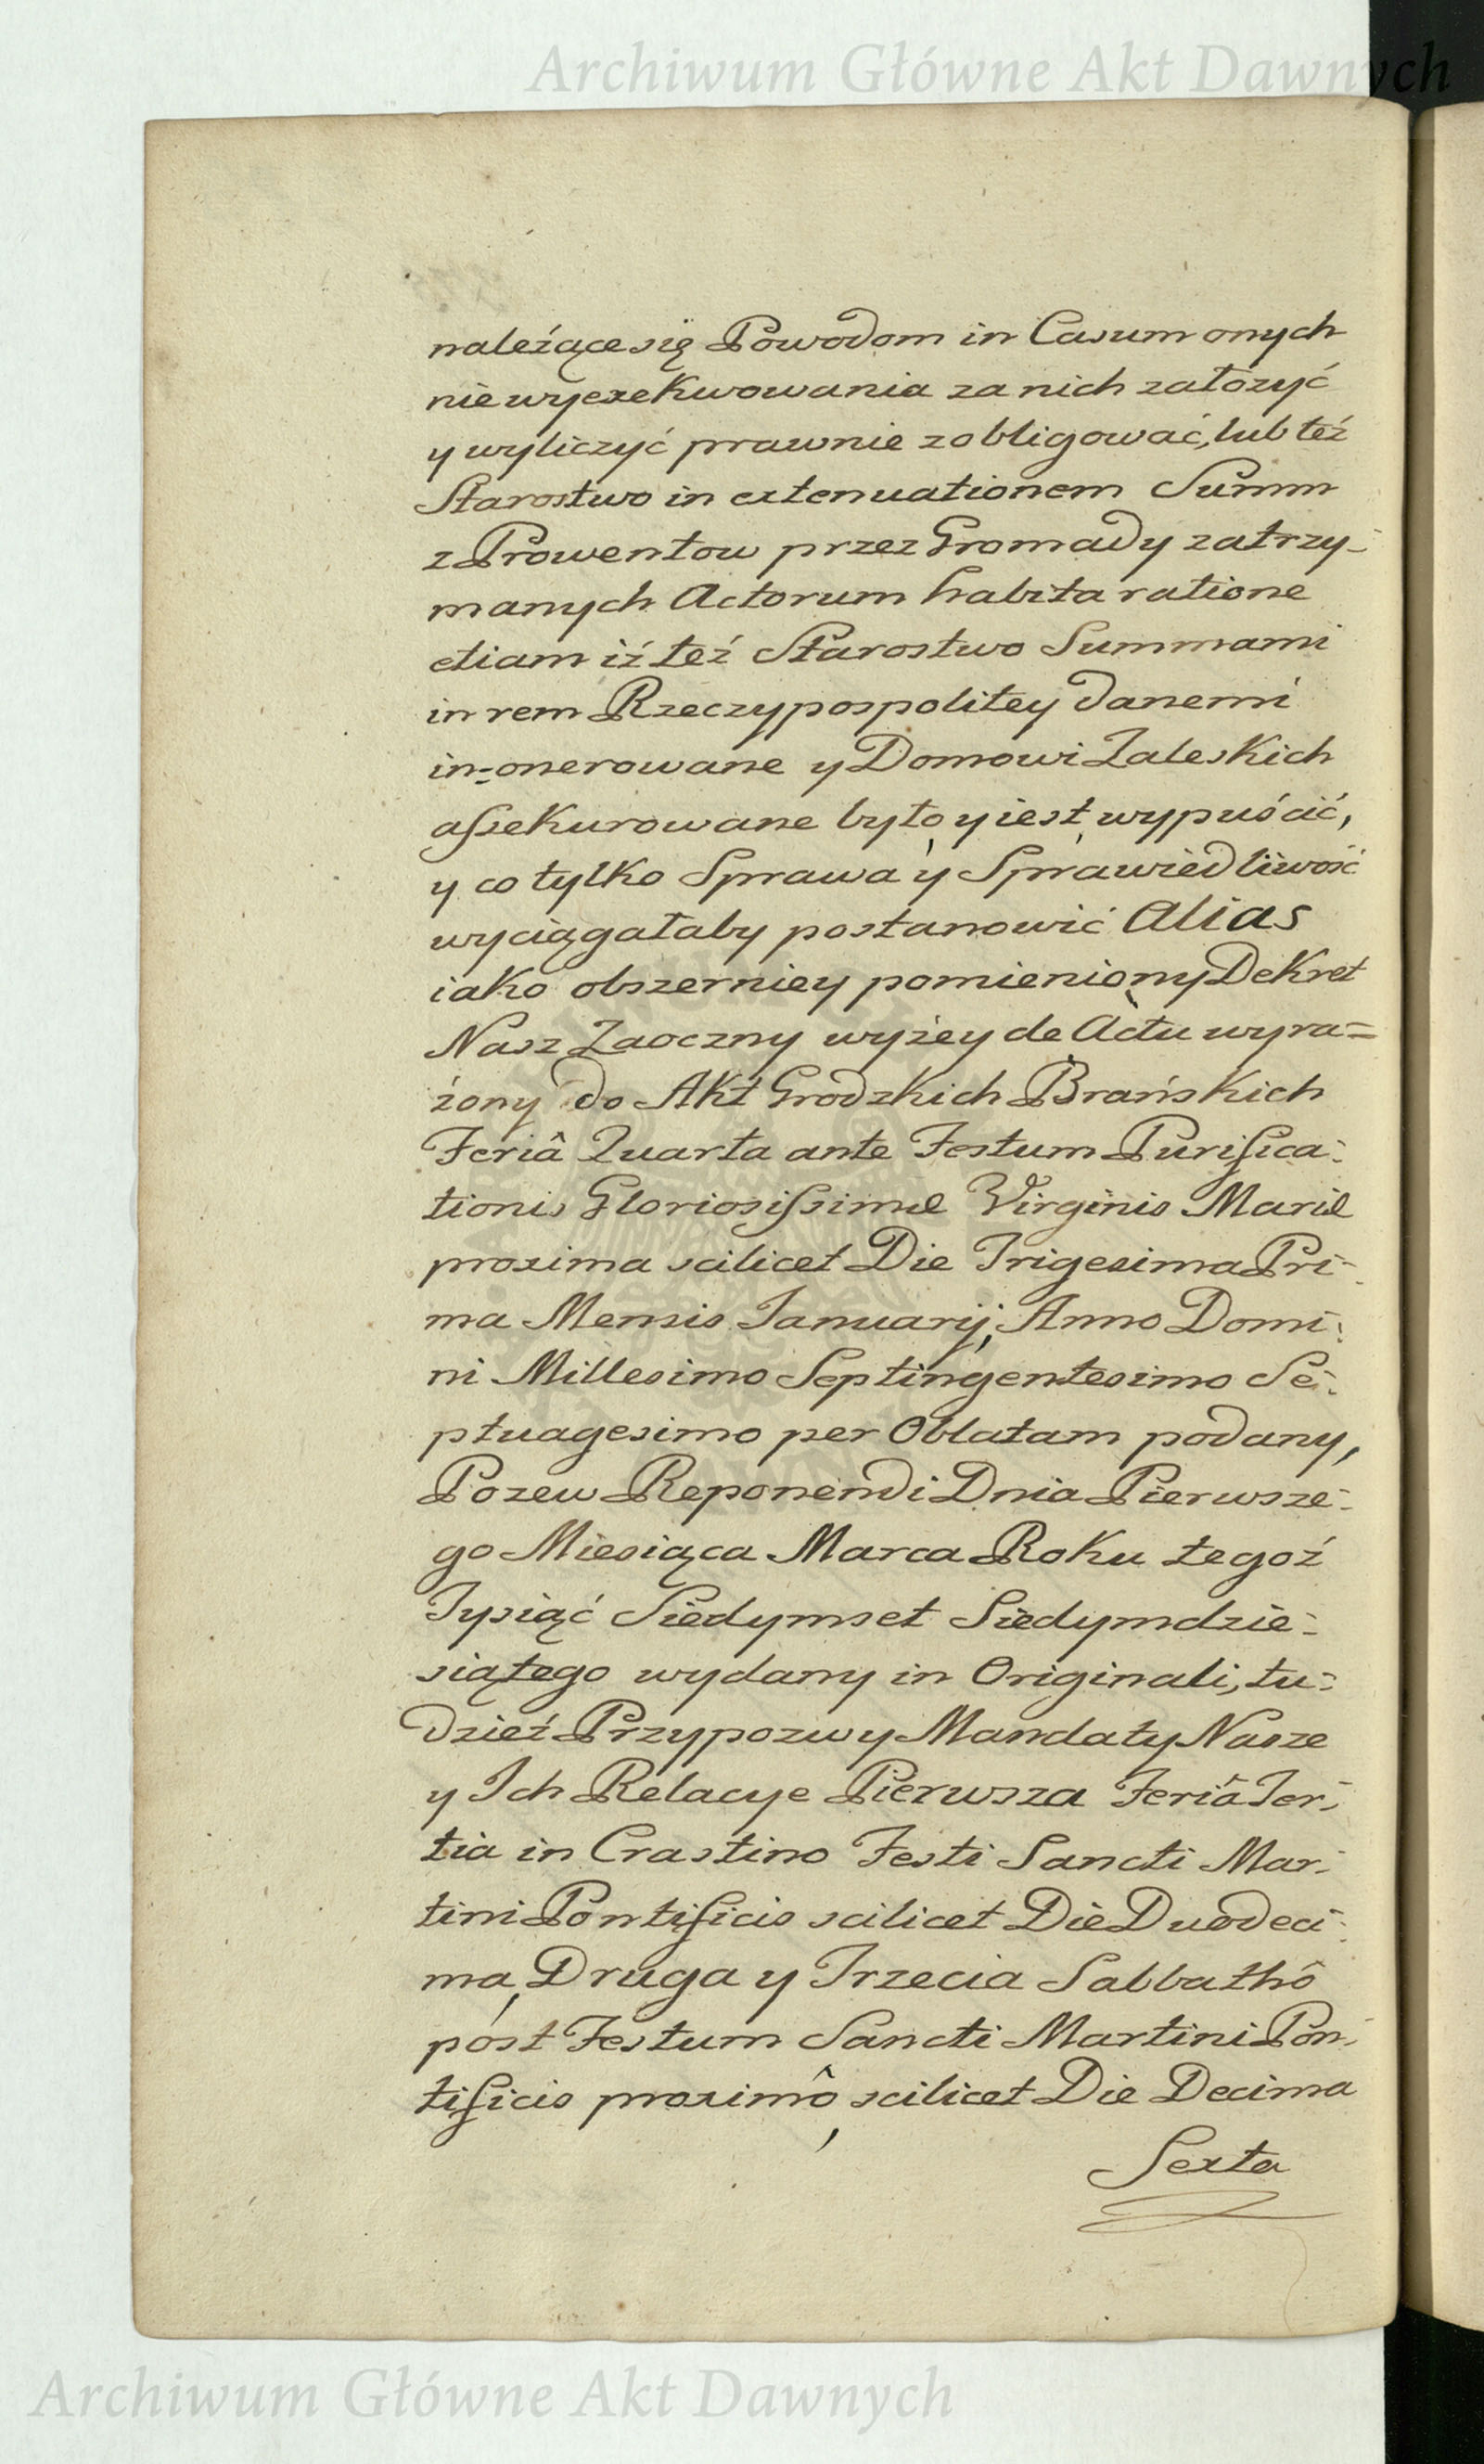 Archiwum Główne Akt Dawnych
należące się Powodom in Casum onych
niewyexekwowania za nich założyć
y wyliczyć prawnie zobligować, lub też
Starostwo in extenuationem Summ
z Prowentow przez Gromady zatrzy-
manych Actorum habita ratione
etiam iż też Starostwo Summami
in rem Rzeczypospolitey danemi
in-onerowane y Domowi Zaleskich
assekurowane było, y iest, wypuścić,
y co tylko Sprawa y Sprawiedliwość
wyciągałaby postanowić Alias
iako obszerniey pomieniony Dekret
Nasz Zaoczny wyżey de Actu wyra=
żony do Akt Grodzkich Brańskich
Feriâ Quarta ante Festum Purifica-
tionis Gloriosissimæ Virginis Mariæ
proxima scilicet Die Trigesima Pri-
ma Mensis Januarij, Anno Domi-
ni Millesimo Septingentesimo Se-
ptuagesimo per Oblatam podany,
Pozew Reponendi Dnia Pierwsze-
go Miesiąca Marca Roku tegoż
Tysiąć Siedymset Siedymdzie-
siątego wydany in Originali, tu-
dzież Przypozwy Mandaty Nasze
y Ich Relacye Pierwsza Feriâ Ter-
tia in Crastino Festi Sancti Mar-
tini Pontificis scilicet Die Duodeci-
ma, Druga y Trzecia Sabbathô
post Festum Sancti Martini Pon-
tificis proximô, scilicet Die Decima
Sexta
Archiwum Główne Akt Dawnych